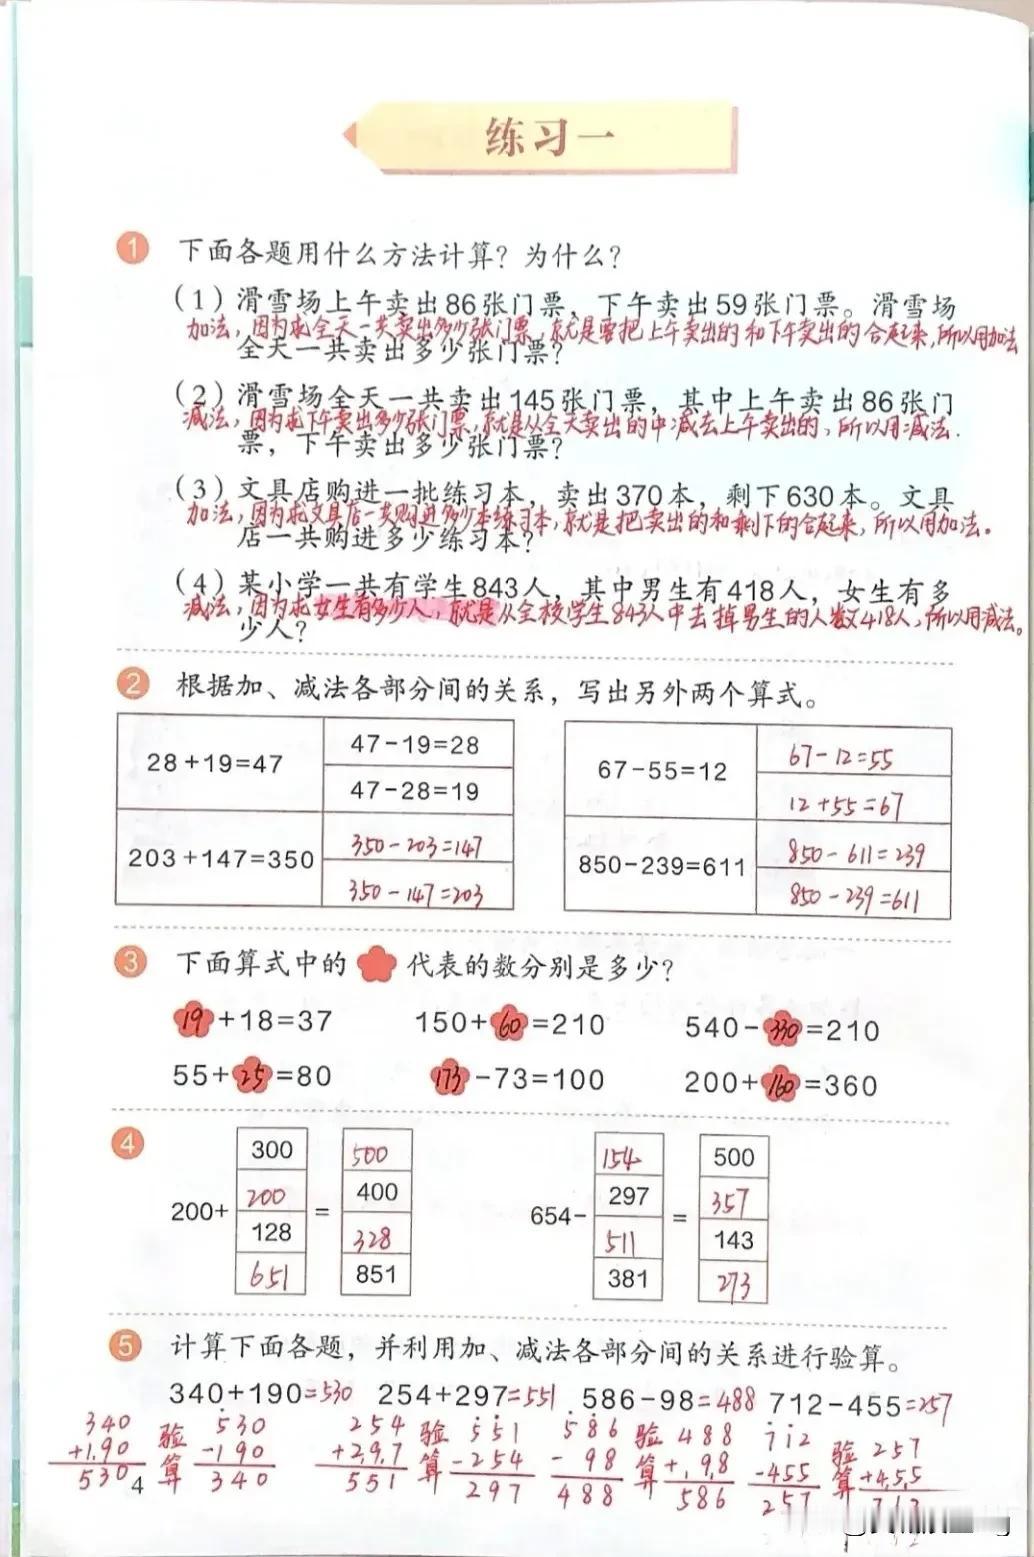 练习一
1 下面各题用什么方法计算？为什么？
(1) 滑雪场上午卖出86张门票，下午卖出59张门票。滑雪场
加法，因为求全天一共卖出多少张门票，就是要把上午卖出的和下午卖出的合起来，所以用加法
全天一共卖出多少张门票？
(2) 滑雪场全天一共卖出145张门票，其中上午卖出86张门
减法，因为求下午卖出多少张门票，就是从全天卖出的中减去上午卖出的，所以用减法.
票，下午卖出多少张门票？
(3) 文具店购进一批练习本，卖出370本，剩下630本。文具
加法，因为求文具店一共购进多少本练习本，就是把卖出的和剩下的合起来，所以用加法。
店一共购进多少练习本？
(4) 某小学一共有学生843人，其中男生有418人，女生有多
减法，因为求女生有多少人，就是从全校学生843人中去掉男生的人数418人，所以用减法。
少人？
2 根据加、减法各部分间的关系，写出另外两个算式。
28+19=47 47-19=28 67-55=12 67-12=55
47-28=19 12+55=67
203+147=350 350-203=147 850-239=611 850-611=239
350-147=203 850-239=611
3 下面算式中的 代表的数分别是多少？
19+18=37 150+60=210 540-330=210
55+25=80 173-73=100 200+160=360
4
300 500 154 500
200+ 200 = 400 654- 297 = 357
128 328 511 143
651 851 381 273
5 计算下面各题，并利用加、减法各部分间的关系进行验算。
340+190=530 254+297=551 586-98=488 712-455=257
340 验 530 254 验 551 586 验 488 712 验 257
+190 算 -190 +297 算 -254 -98 算 +98 -455 算 +455
530 340 551 297 488 586 257
4